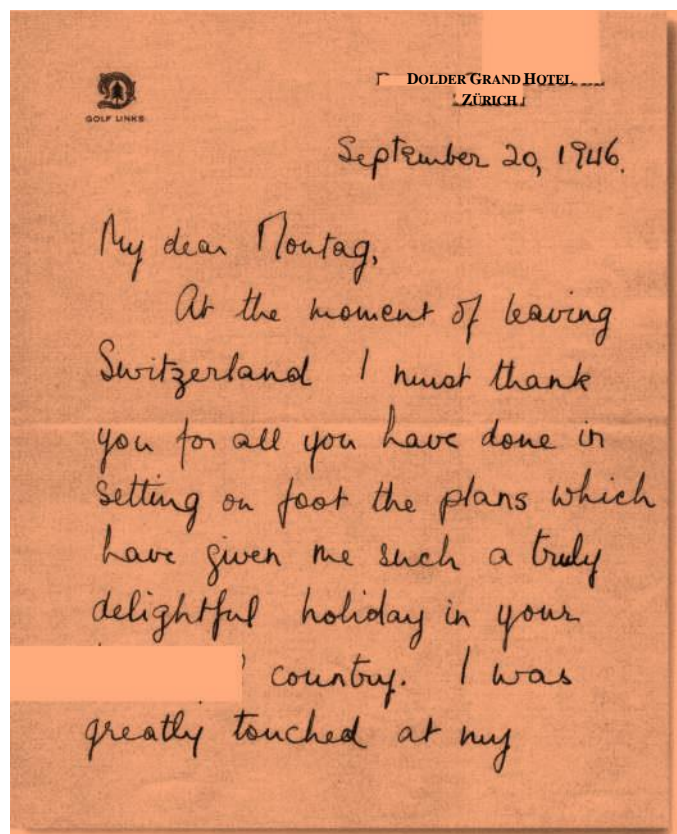 GOLF LINKS
DOLDER GRAND HOTEL
ZÜRICH
September 20, 1946.
My dear Montag,
At the moment of leaving
Switzerland I must thank
you for all you have done in
setting on foot the plans which
have given me such a truly
delightful holiday in your
country. I was
greatly touched at my